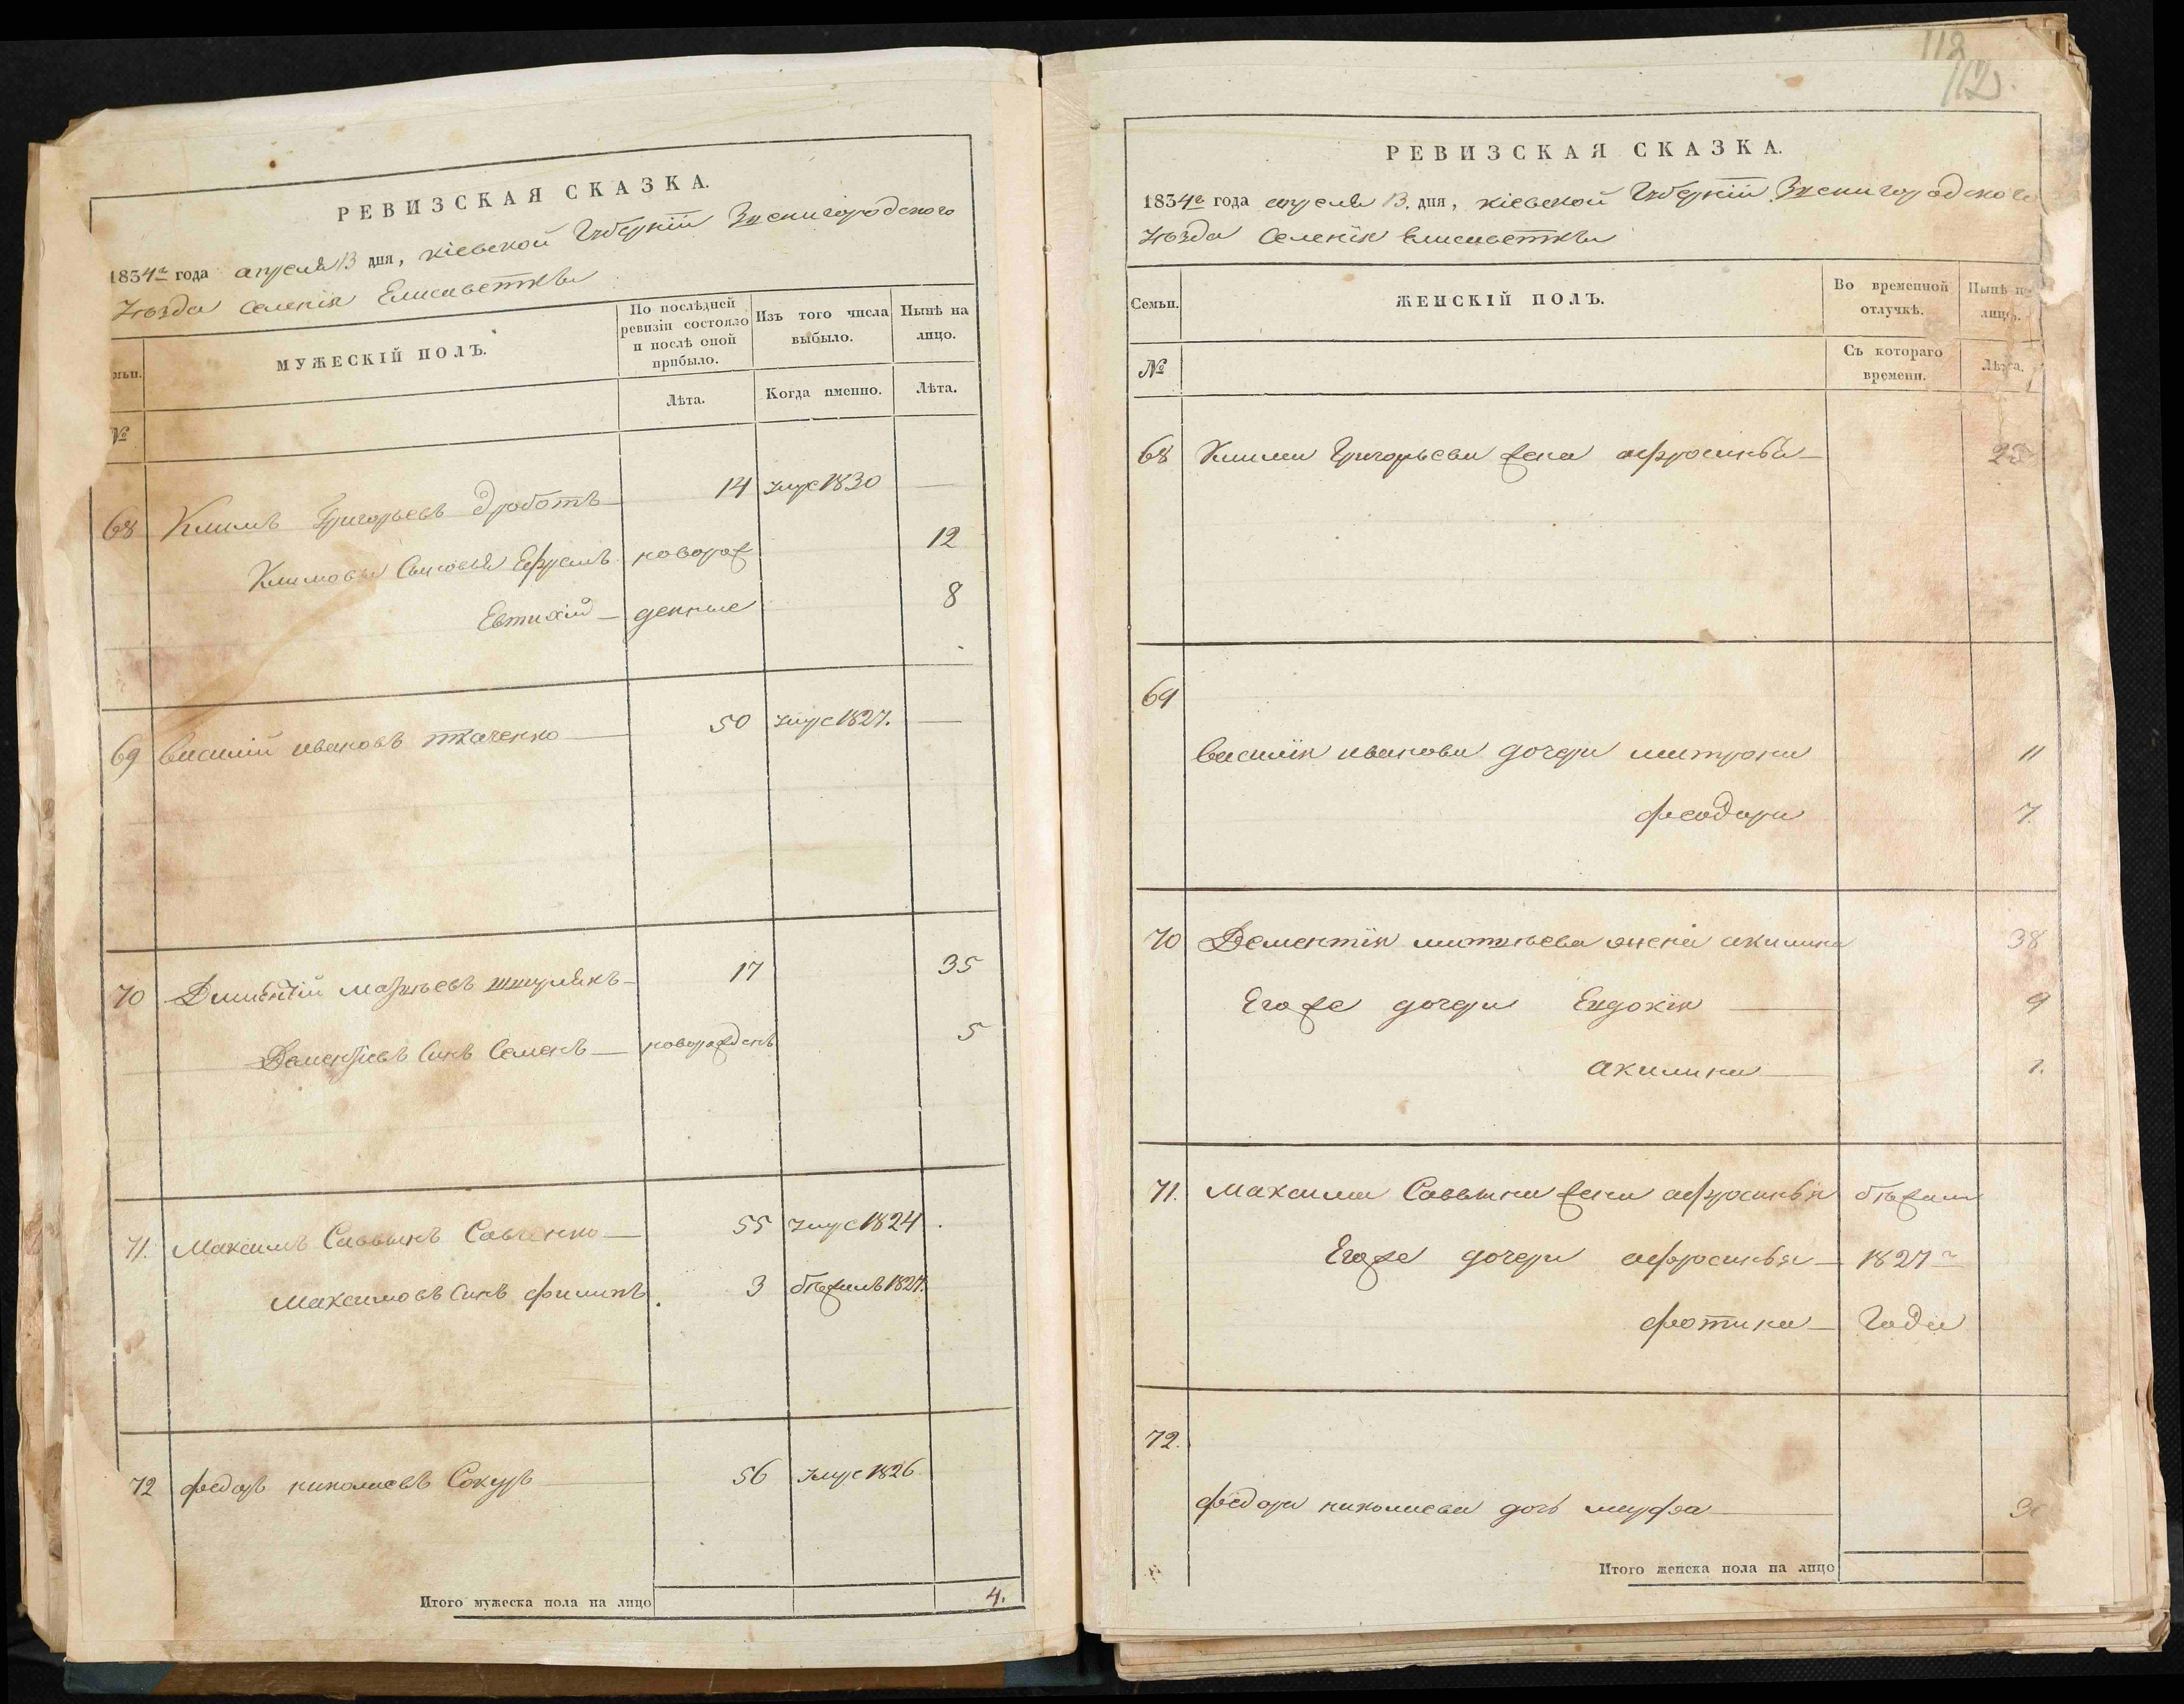 РЕВИЗСКАЯ СКАЗКА.
1834го года апреля 13 дня, кіевской Губерніи Звенигородского
Уезда Селенія Елисаветки
мьи. МУЖЕСКІЙ ПОЛЪ. По послѣдней ревизіи состояло и послѣ оной прибыло. Изъ того числа выбыло. Нынѣ на лицо.
№ Лѣта. Когда именно. Лѣта.
68 Климъ Григорьевъ Дроботъ 14 умре 1830 —
Климовы Сыновья Ефремъ новорож 12
Евтихій — денные 8
69 василій ивановъ ткаченко — 50 умре 1827. —
70 Дементій шкурякъ 17 35
Дементіевъ Синъ Семенъ — новорожденъ 5
71. Максимъ Саввинъ Савченко — 55 умре 1824.
Максимовъ Синъ филипъ. 3 бѣжалъ 1827.
72 федоръ николаевъ Сокуръ — 56 умре 1826
Итого мужеска пола на лицо 4.
112
112.
РЕВИЗСКАЯ СКАЗКА.
1834го года апреля 13. дня, кіевской Губерніи Звенигородского
Уезда Селенія Елисаветки
Семьи. ЖЕНСКІЙ ПОЛЪ. Во временной отлучкѣ. Нынѣ на лицо.
№ Съ котораго времени. Лѣта.
68 Клима Григорьева жена афросинья —
69
василія иванова дочери матрона 11
феодора 7.
70 Дементія жена акилина 38
Егоже дочери Евдокія — 9
акилина — 1.
71. Максима Саввина жена афросинья бѣжали
Егоже дочери афросинья — 1827го
фотина — Года
72.
федора николаева дочь марфа —
Итого женска пола на лицо